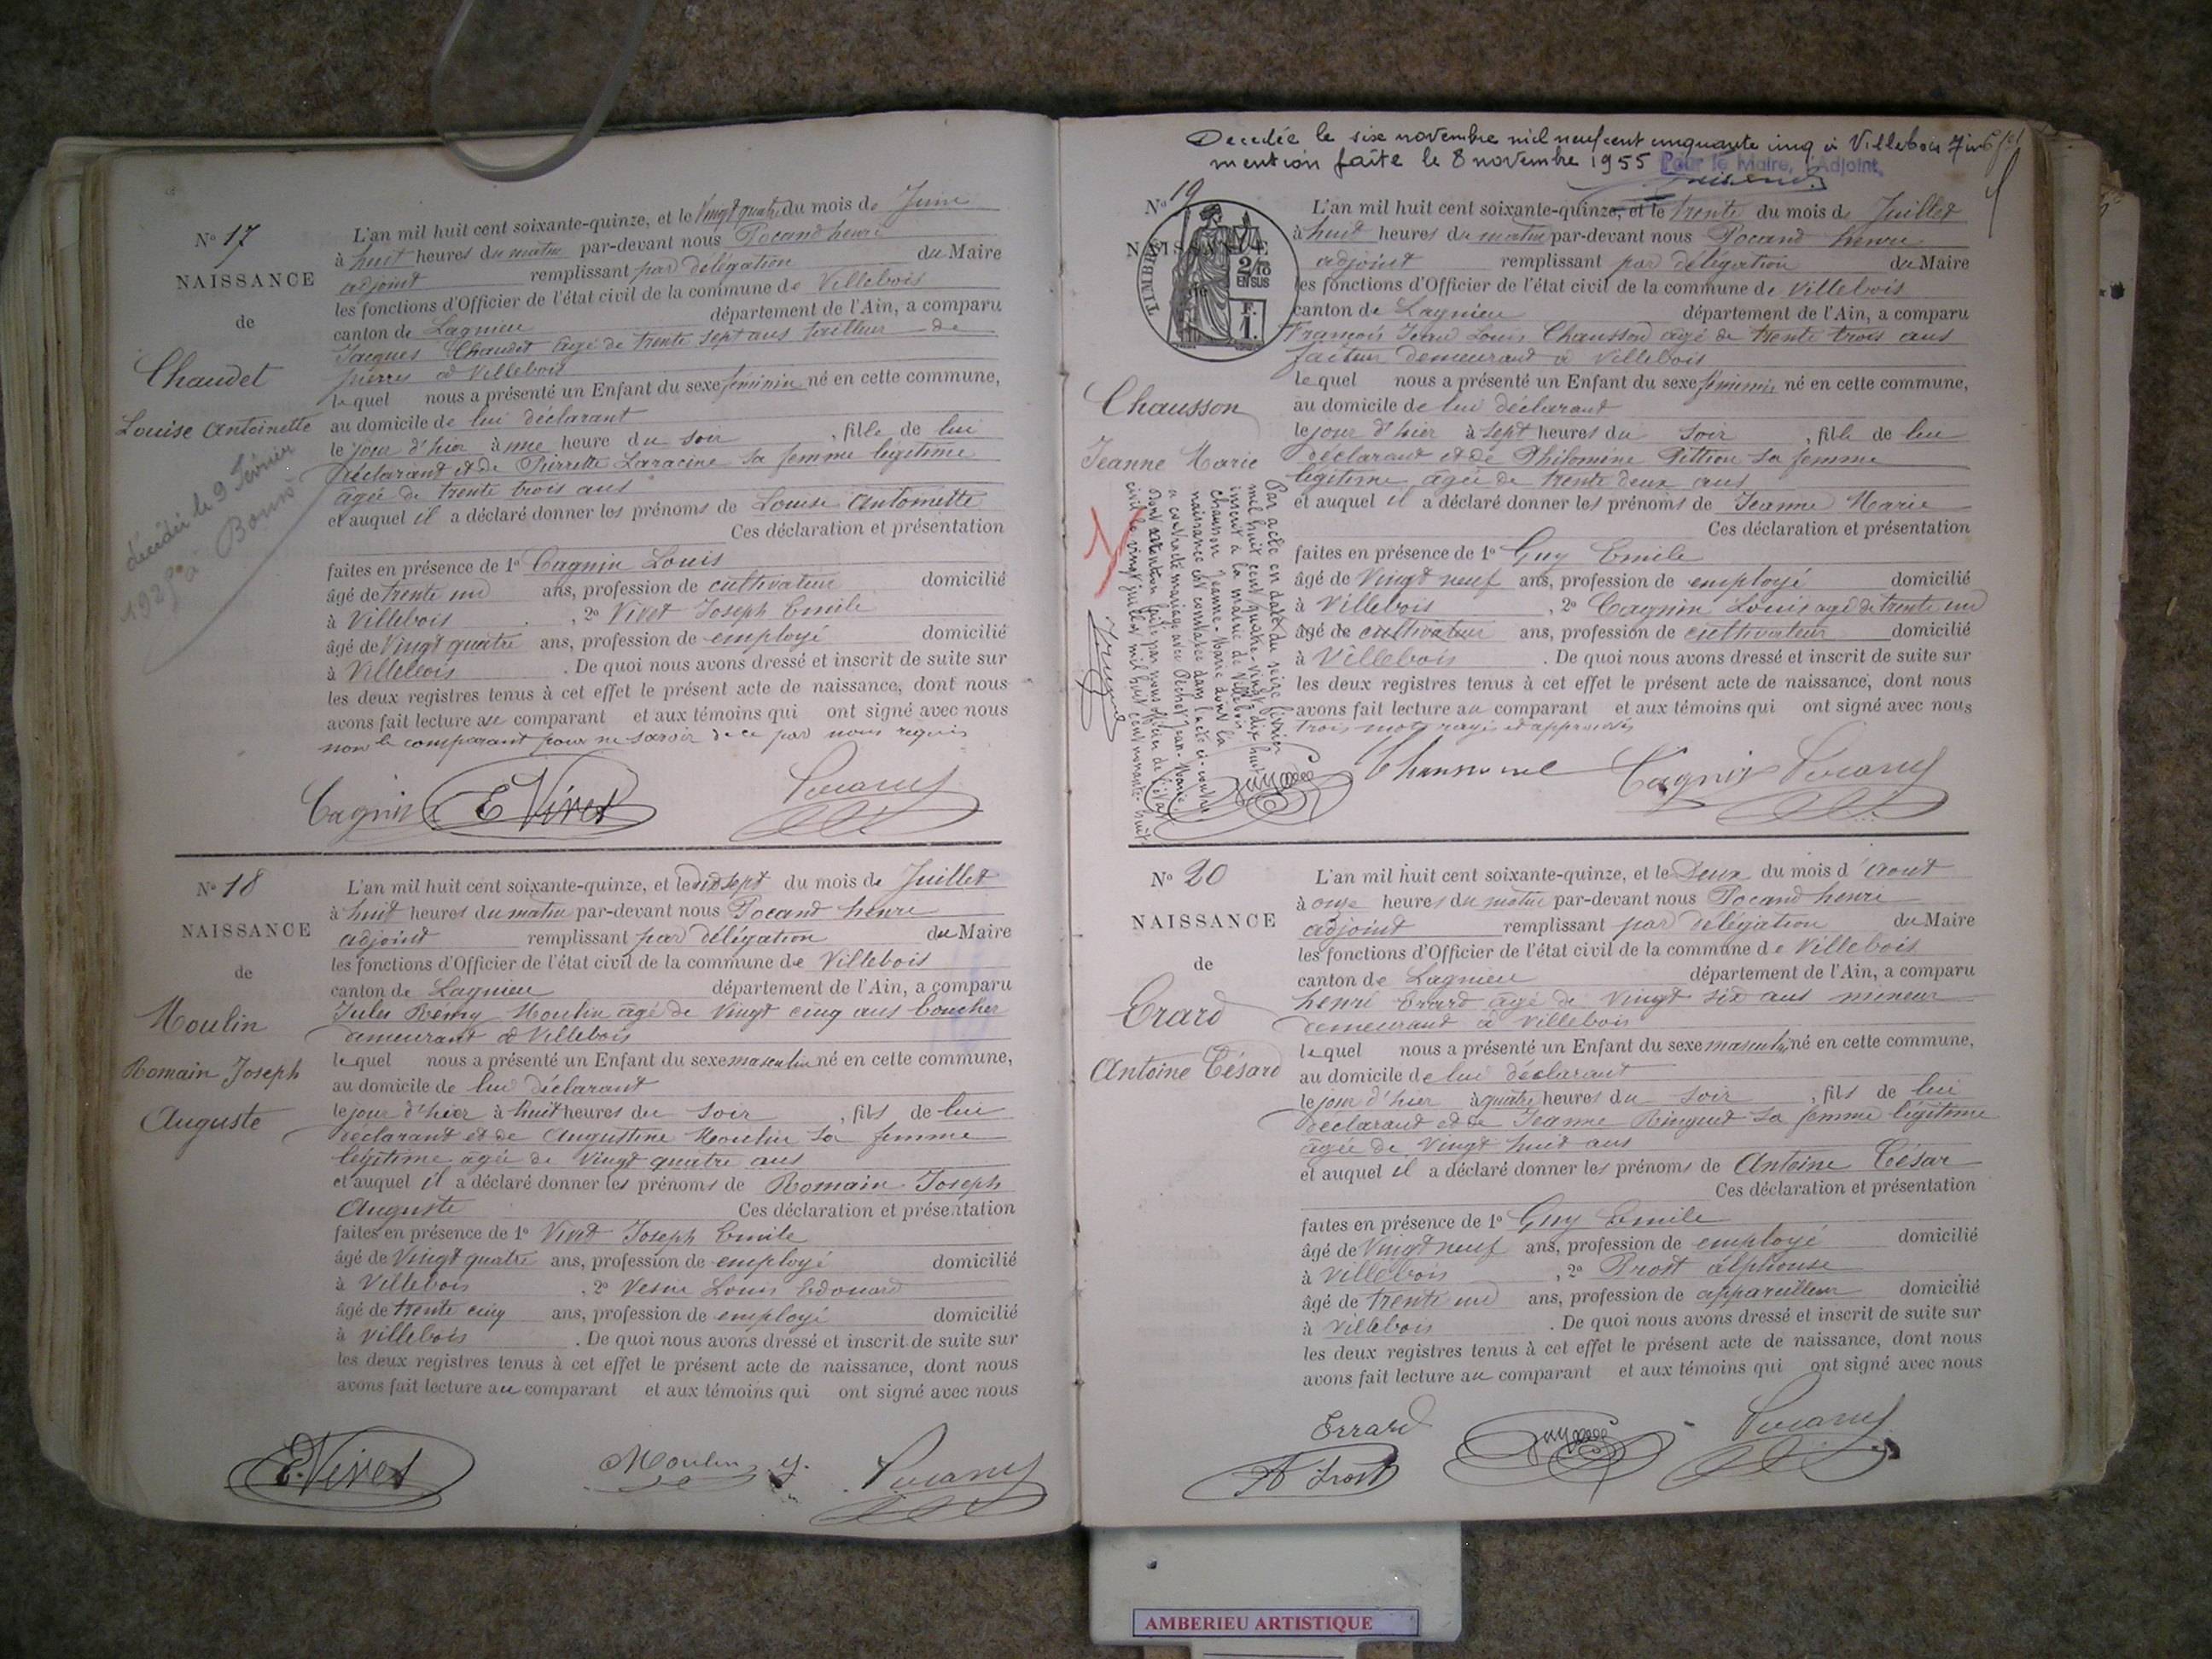 N° 17
NAISSANCE
de
Chaudet
Louise Antoinette
décédée le 9 Février
1928 à
L'an mil huit cent soixante-quinze, et le Vingt quatre du mois de Juin
à huit heures du matin par-devant nous Pocand henri
adjoint remplissant par délégation du Maire
les fonctions d'Officier de l'état civil de la commune de Villebois
canton de Lagnieu département de l'Ain, a comparu
Jacques Chaudet âgé de trente sept ans tailleur de
pierres à Villebois
lequel nous a présenté un Enfant du sexe féminin né en cette commune,
au domicile de lui déclarant
le jour d'hier à une heure du soir , fille de lui
déclarant et de Pierrette Laracine sa femme légitime
âgée de trente trois ans
et auquel il a déclaré donner les prénoms de Louise Antoinette
Ces déclaration et présentation
faites en présence de 1° Cagnin Louis
âgé de trente un ans, profession de cultivateur domicilié
à Villebois , 2° Vivet Joseph Emile
âgé de Vingt quatre ans, profession de employé domicilié
à Villebois . De quoi nous avons dressé et inscrit de suite sur
les deux registres tenus à cet effet le présent acte de naissance, dont nous
avons fait lecture au comparant et aux témoins qui ont signé avec nous
non le comparant pour ne savoir de ce par nous requis
Cagnin E Vivet Pocand
N° 18
NAISSANCE
de
Moulin
Romain Joseph
Auguste
L'an mil huit cent soixante-quinze, et le dix sept du mois de Juillet
à huit heures du matin par-devant nous Pocand henri
adjoint remplissant par délégation du Maire
les fonctions d'Officier de l'état civil de la commune de Villebois
canton de Lagnieu département de l'Ain, a comparu
Jules Remy Moulin âgé de Vingt cinq ans boucher
demeurant à Villebois
lequel nous a présenté un Enfant du sexe masculin né en cette commune,
au domicile de lui déclarant
le jour d'hier à huit heures du soir , fils de lui
déclarant et de Augustine Moulin sa femme
légitime âgée de Vingt quatre ans
et auquel il a déclaré donner les prénoms de Romain Joseph
Auguste Ces déclaration et présentation
faites en présence de 1° Vivet Joseph Emile
âgé de Vingt quatre ans, profession de employé domicilié
à Villebois , 2° Vesin Louis Edouard
âgé de trente cinq ans, profession de employé domicilié
à Villebois . De quoi nous avons dressé et inscrit de suite sur
les deux registres tenus à cet effet le présent acte de naissance, dont nous
avons fait lecture au comparant et aux témoins qui ont signé avec nous
E. Vivet Moulin Pocand
Decedée le six novembre mil neuf cent cinquante cinq à Villebois
mention faite le 8 novembre 1955 Pour le Maire, l'Adjoint,
N° 19
NAISSANCE
TIMBRE
2/10
EN SUS
F.
1.
Chausson
Jeanne Marie
L'an mil huit cent soixante-quinze, et le trente du mois de Juillet
à huit heures du matin par-devant nous Pocand henri
adjoint remplissant par délégation du Maire
les fonctions d'Officier de l'état civil de la commune de Villebois
canton de Lagnieu département de l'Ain, a comparu
François Jean Louis Chausson âgé de trente trois ans
facteur demeurant à Villebois
lequel nous a présenté un Enfant du sexe féminin né en cette commune,
au domicile de lui déclarant
le jour d'hier à sept heures du soir , fille de lui
déclarant et de Philomine Pittion sa femme
légitime âgée de trente deux ans
et auquel il a déclaré donner les prénoms de Jeanne Marie
Ces déclaration et présentation
faites en présence de 1° Guy Emile
âgé de Vingt neuf ans, profession de employé domicilié
à Villebois , 2° Cagnin Louis agé de trente un
âgé de cultivateur ans, profession de cultivateur domicilié
à Villebois . De quoi nous avons dressé et inscrit de suite sur
les deux registres tenus à cet effet le présent acte de naissance, dont nous
avons fait lecture au comparant et aux témoins qui ont signé avec nous
trois mots rayés et approuvés
Par acte en date du seize février
mil huit cent quatre-vingt dix huit
inscrit à la mairie de Villebois
Chausson Jeanne-Marie dont la
naissance est constatée dans l'acte ci-contre
a contracté mariage avec Jean-Marie
Dont mention faite par nous officier de l'état
civil le vingt juillet mil huit cent nonante-huit
Chausson Cagnin Pocand
N° 20
NAISSANCE
de
Erard
Antoine César
L'an mil huit cent soixante-quinze, et le Deux du mois d'Aout
à onze heures du matin par-devant nous Pocand henri
adjoint remplissant par délégation du Maire
les fonctions d'Officier de l'état civil de la commune de Villebois
canton de Lagnieu département de l'Ain, a comparu
henri Erard âgé de Vingt six ans mineur
demeurant à Villebois
lequel nous a présenté un Enfant du sexe masculin né en cette commune,
au domicile de lui déclarant
le jour d'hier à quatre heures du soir , fils de lui
déclarant et de Jeanne Ringuet sa femme légitime
âgée de Vingt huit ans
et auquel il a déclaré donner les prénoms de Antoine César
Ces déclaration et présentation
faites en présence de 1° Guy Emile
âgé de Vingt neuf ans, profession de employé domicilié
à Villebois , 2° Prost alphonse
âgé de trente un ans, profession de appareilleur domicilié
à Villebois . De quoi nous avons dressé et inscrit de suite sur
les deux registres tenus à cet effet le présent acte de naissance, dont nous
avons fait lecture au comparant et aux témoins qui ont signé avec nous
Errard Pocand
A Prost
AMBERIEU ARTISTIQUE